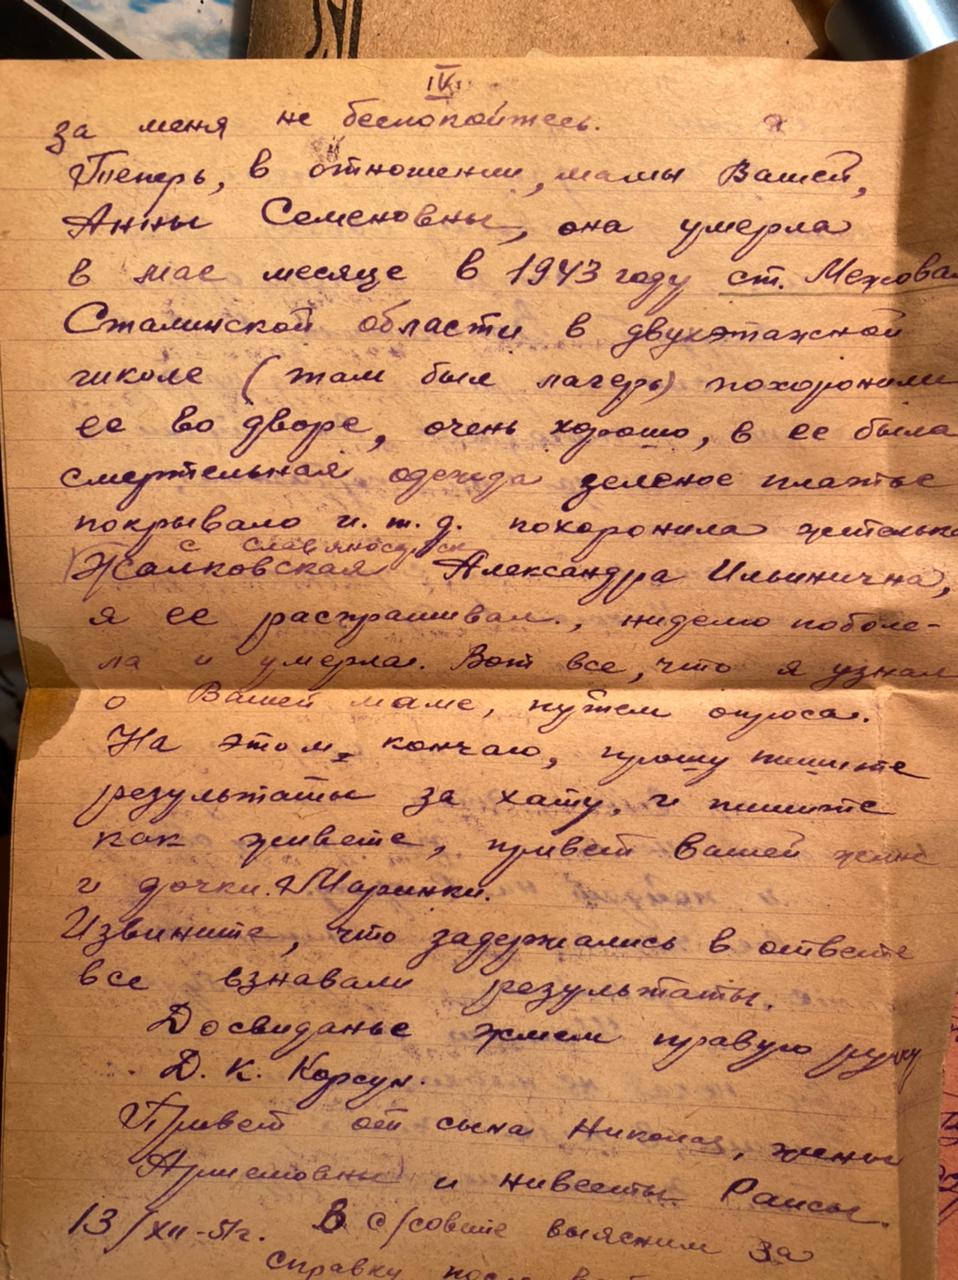 IV
за меня не беспокойтесь. Я
Теперь, в отношении, мамы Вашей,
Анны Семеновны, она умерла
в мае месяце в 1943 году ст. Межовая
Сталинской области в двухэтажной
школе (там был лагерь) похоронили
ее во дворе, очень хорошо, в ее была
смертельная одежда зеленое платье
покрывало и. т. д. похоронила жителька
с Славяносербск
Жалковская Александра Ильинична,
я ее распрашивал, ниделю поболе-
ла и умерла. Вот все, что я узнал
о Вашей маме, путем опроса.
На этом, кончаю, прошу пишите
результаты за хату, и пишите
как живете, привет вашей жине
и дочки Маринки.
Извините, что задержались в ответе
все взнавали результаты.
Досвиданье жмем правую руку
Д. К. Корсун.
Привет от сына Николая, жены
и нивесты Раисы.
13/XII- В с/совете выясним за
справку после